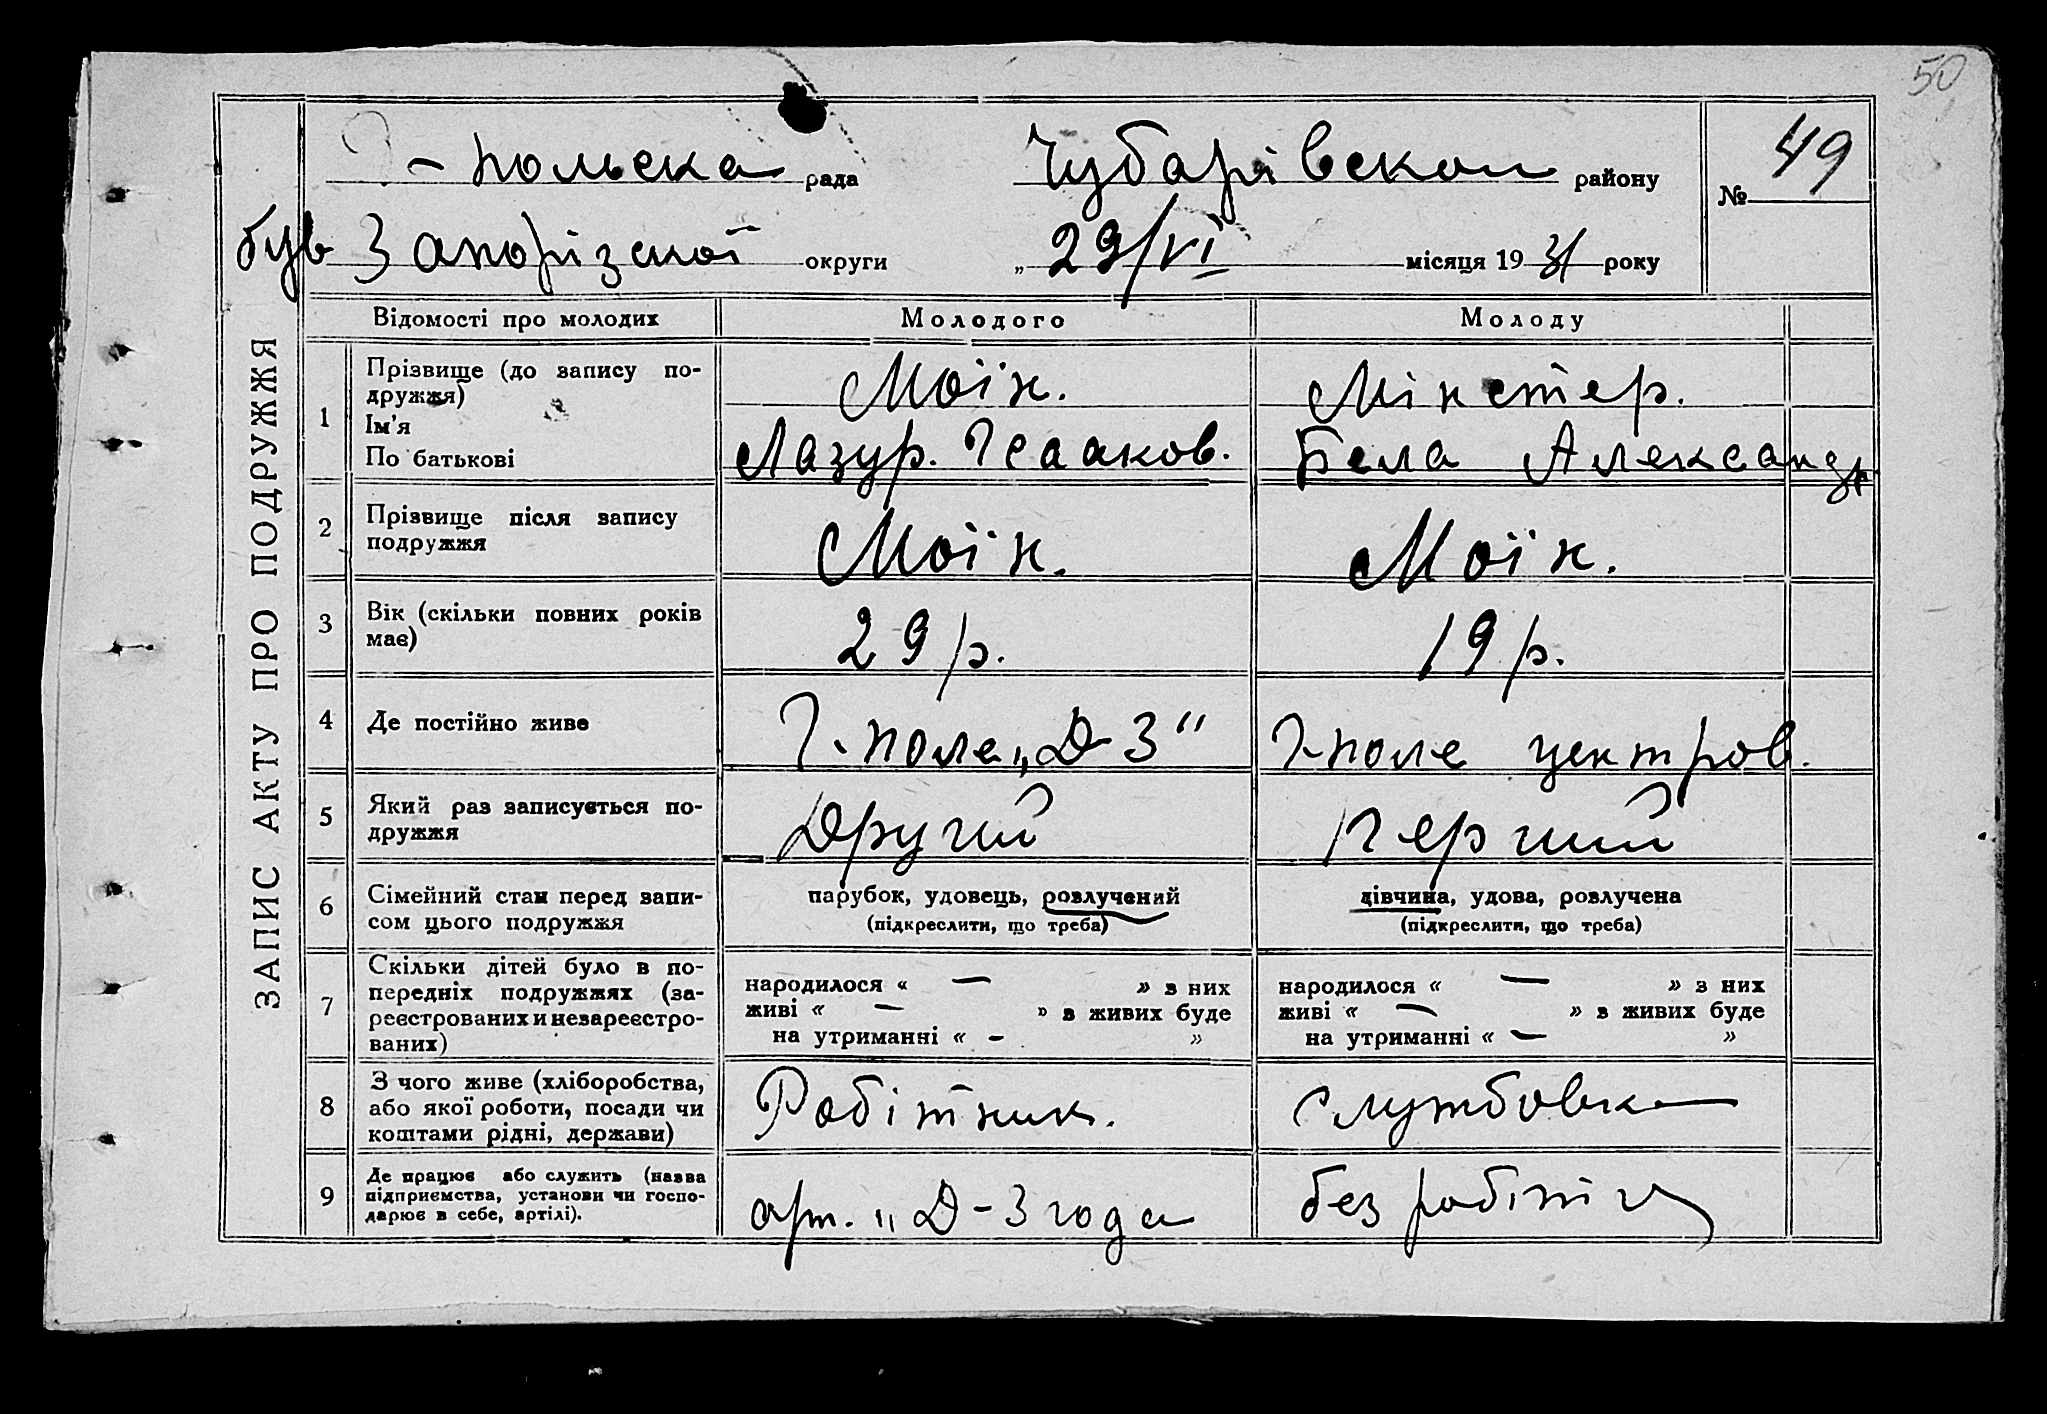 50
- польска рада Чубарівскои району № 49
був Запорізской округи „ 29/VI місяця 1931 року
ЗАПИС АКТУ ПРО ПОДРУЖЖЯ
Відомості про молодих Молодого Молоду
1 Прізвище (до запису по-
дружжя) Моін. Мінстер.
Ім'я
По батькові Лазур. Ісааков. Бела Александр
2 Прізвище після запису
подружжя Моін. Моїн.
3 Вік (скільки повних років
має) 29 р. 19 р.
4 Де постійно живе Г-поле „Д-3“ Г-поле центров.
5 Який раз записується по-
дружжя Другий Перший
6 Сімейний стан перед запи-
сом цього подружжя парубок, удовець, розлучений дівчина, удова, розлучена
(підкреслити, що треба) (підкреслити, що треба)
7 Скільки дітей було в по-
передніх подружжях (за-
реєстрованих и незареєстро-
ваних)
народилося « — » з них
живі « — » з живих буде
на утриманні « - »
народилося « — » з них
живі « — » з живих буде
на утриманні « — »
8 З чого живе (хліборобства,
або якої роботи, посади чи
коштами рідні, держави) Робітник. Службовка
9 Де працює або служить (назва
підприємства, установи чи госпо-
дарює в себе, артілі). арт. „Д-3 года без робітні